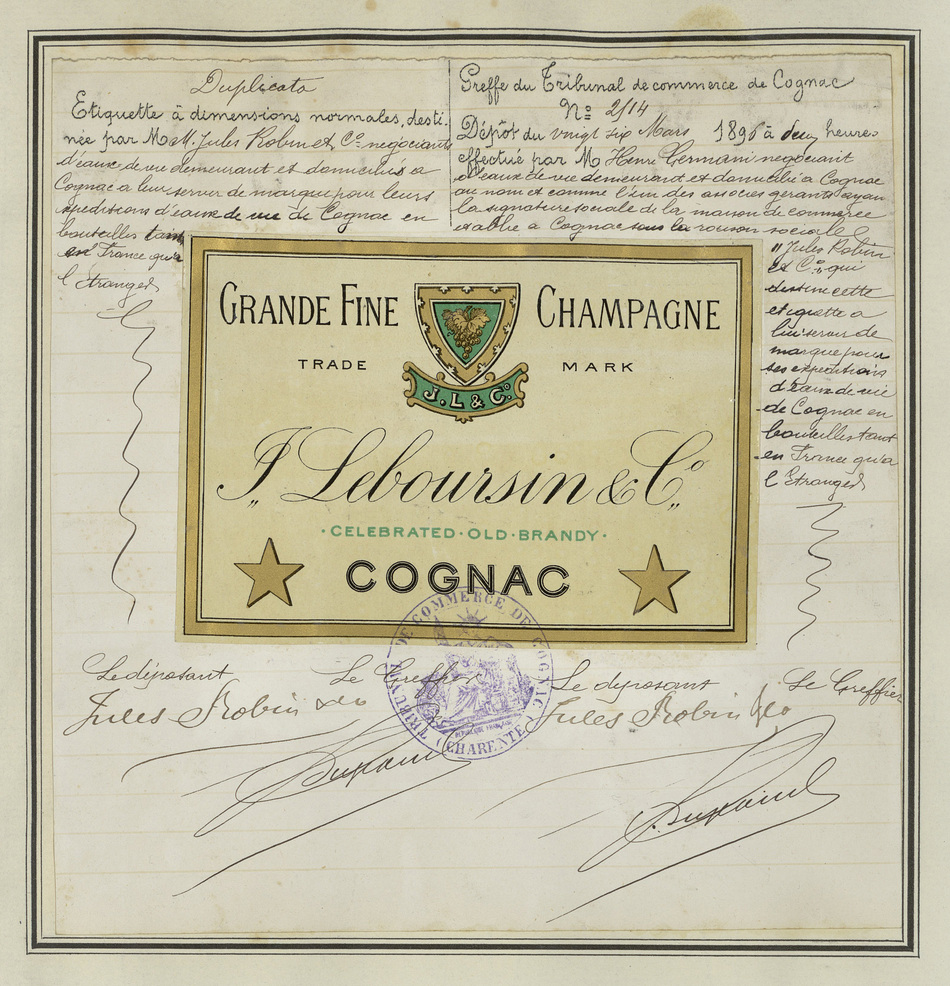 Duplicata
Etiquette à dimensions normales, desti-
née par MM. Jules Robin et Co. négociants
d'eaux de vie demeurant et domiciliés a
Cognac a leur servir de marque pour leurs
expéditions d'eaux de vie de Cognac en
bouteilles tant
en France qu'a
l'Etranger
Greffe du Tribunal de commerce de Cognac
No 2114
Dépôt du vingt six Mars 1896 à deux heures
effectué par M Henri Germain négociant
d'eaux de vie demeurant et domicilié a Cognac
au nom et comme l'un des associés gérants ayant
la signature sociale de la maison de commerce
établie a Cognac sous la raison sociale
"Jules Robin
et Co" qui
destine cette
etiquette a
lui servir de
marque pour
ses expéditions
d'eaux de vie
de Cognac en
bouteilles tant
en France qu'a
l'Etranger
GRANDE FINE CHAMPAGNE
TRADE MARK
J. L & Co.
J. Leboursin & Co.
·CELEBRATED·OLD·BRANDY·
COGNAC
TRIBUNAL DE COMMERCE DE COGNAC
(CHARENTE)
Le déposant Le Greffier
Jules Robin & Co
Le deposant Le Greffier
Jules Robin & Co